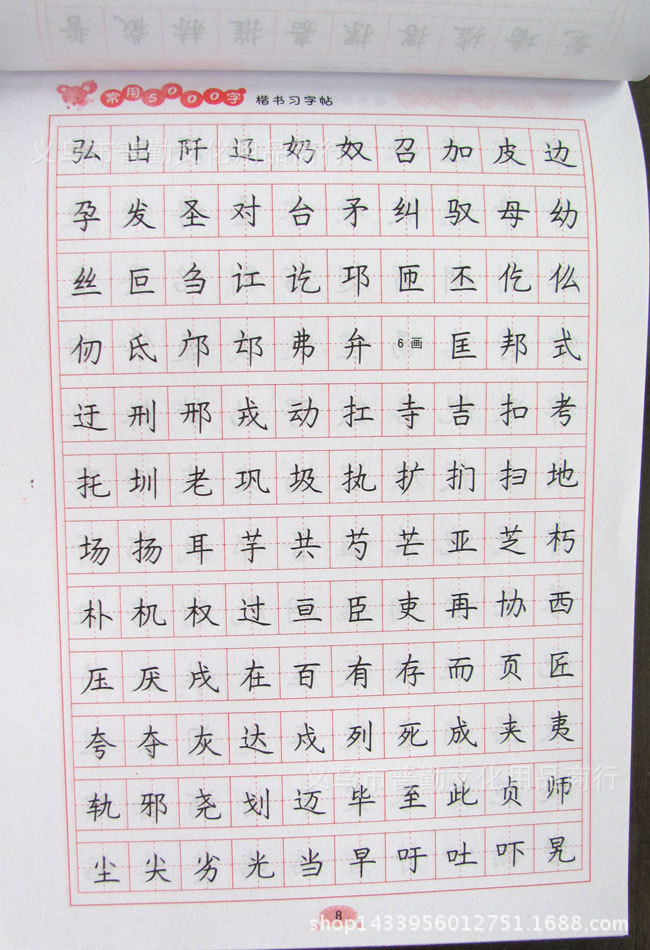 常用5000字 楷书习字帖
弘出阡辽奶奴召加皮边
孕发圣对台矛纠驭母幼
丝巨刍讧讫邛匝丕仡仫
仞氐邝邙弗弁6画匡邦式
迂刑邢戎动扛寺吉扣考
托圳老巩圾执扩扪扫地
场扬耳芋共芍芒亚芝朽
朴机权过亘臣吏再协西
压厌戌在百有存而页匠
夸夺灰达戍列死成夹夷
轨邪尧划迈毕至此贞师
尘尖劣光当早吁吐吓晃
8
义乌市普勤文化用品商行
shop1433956012751.1688.com